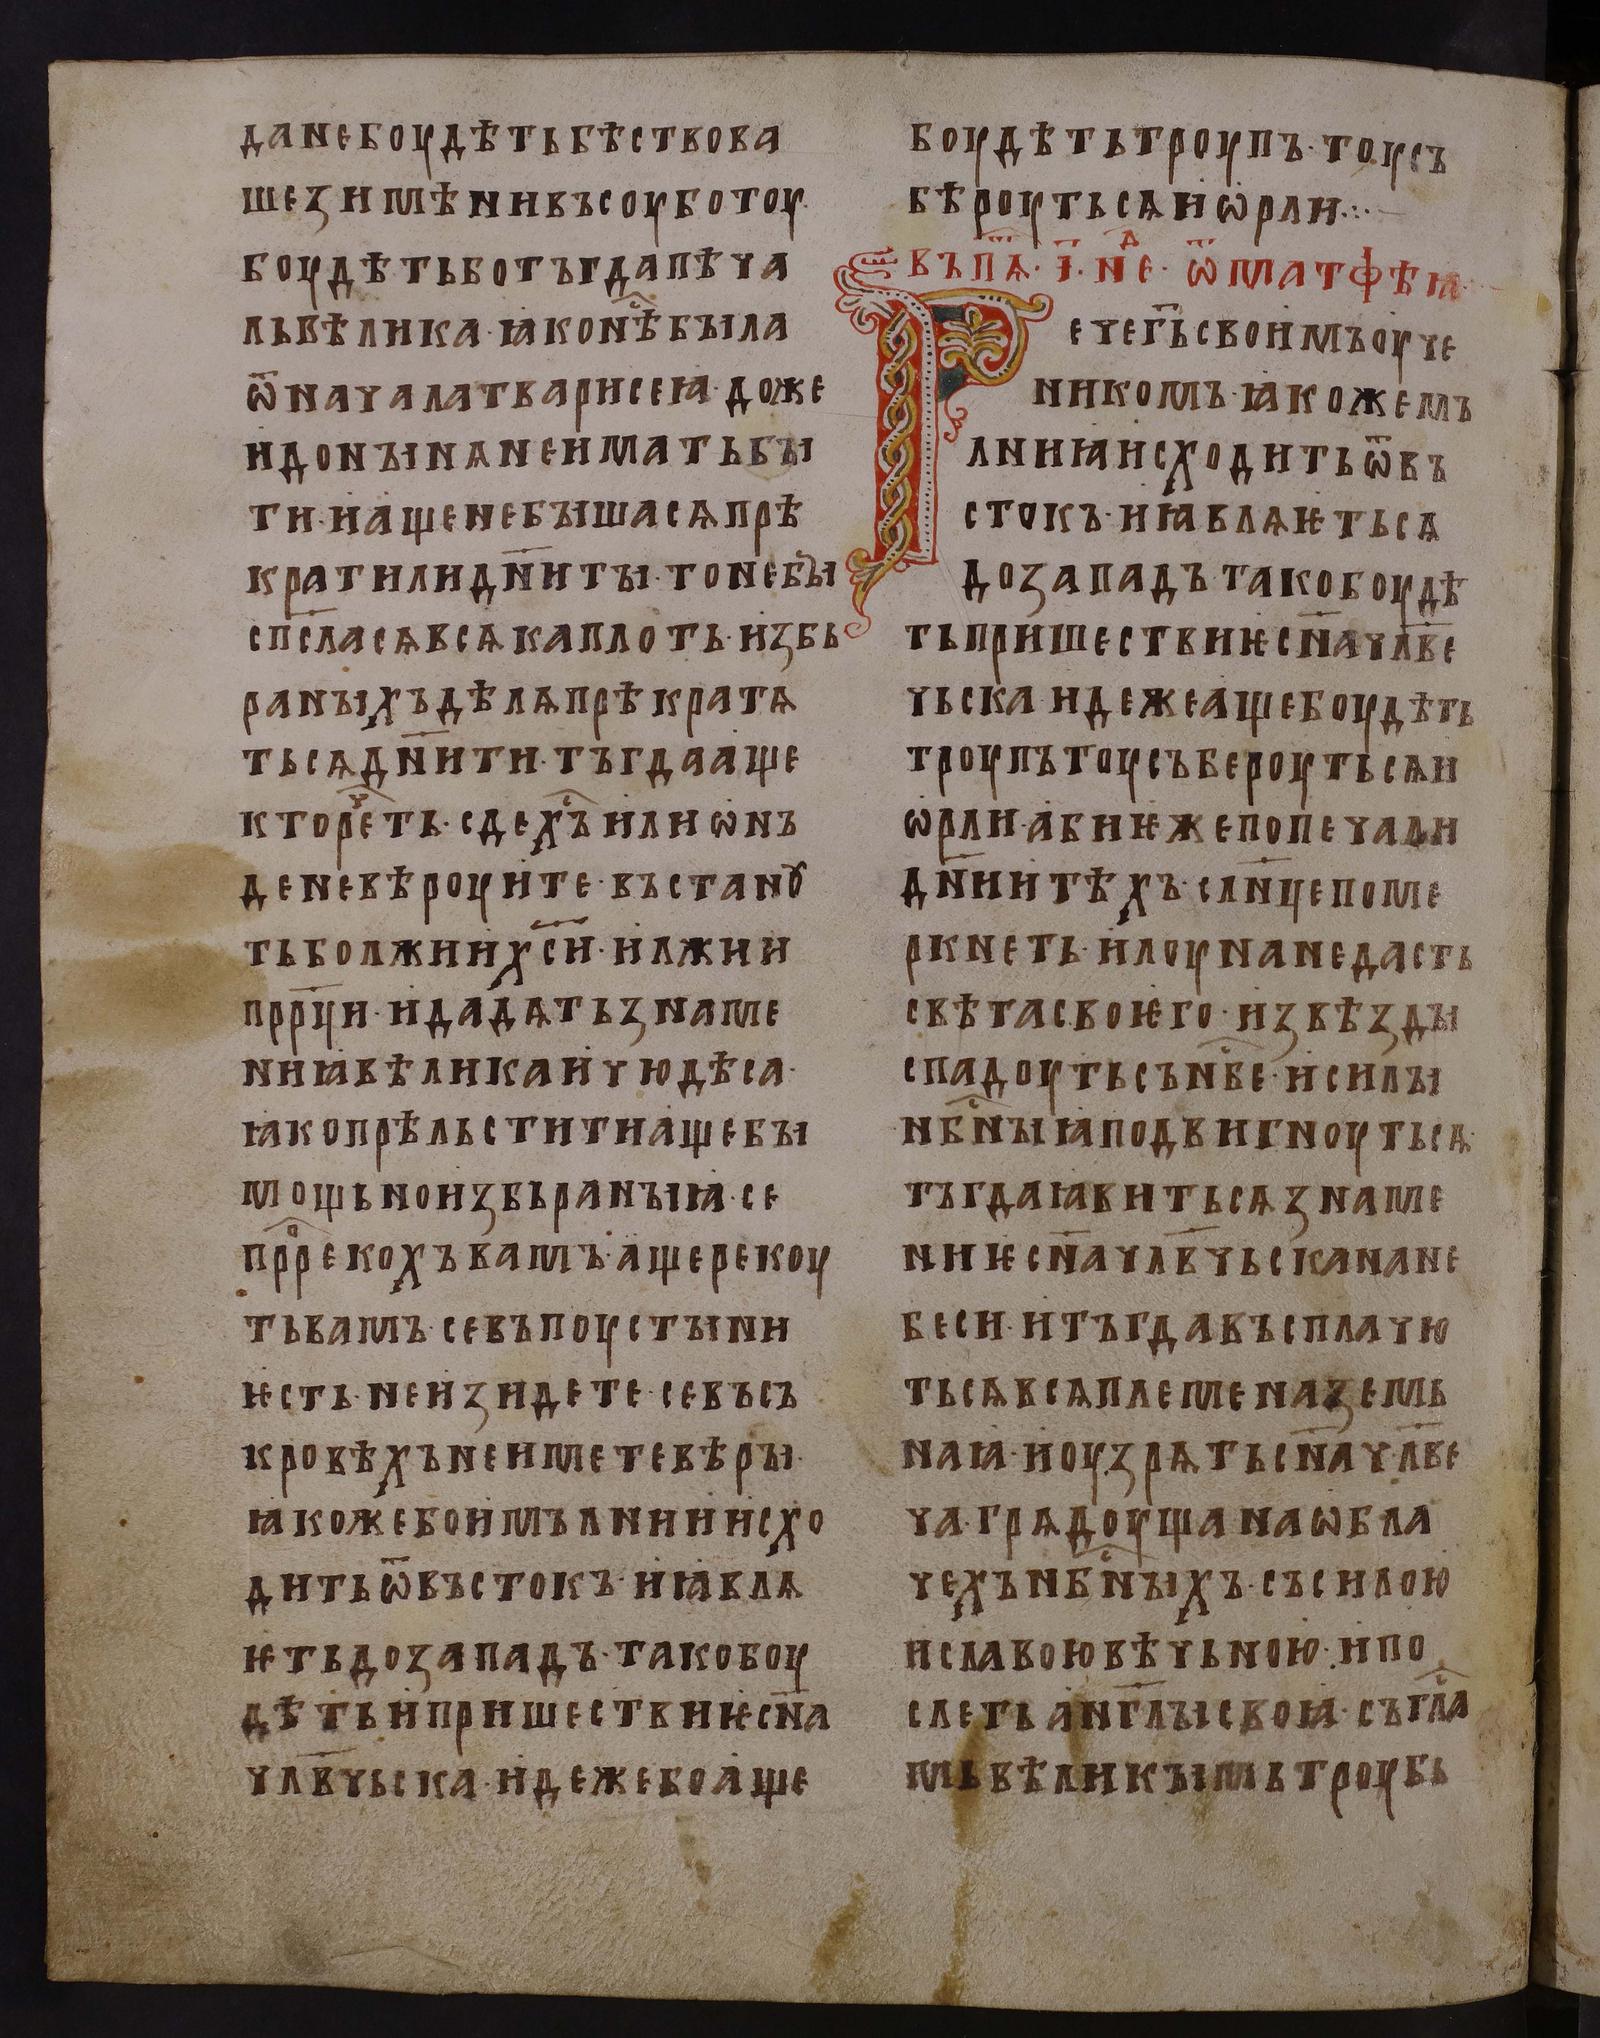 да не боудѣть бѣство ва
ше зимѣ ни въ соуботоу·
боудѣть бо тъгда пѣча
ль вѣлика· ꙗко нѣⷭ҇ была
ѿ начала твари сеꙗ· доже
и до нынѧ не имать бы
ти· и аще не быша сѧ прѣ
кратили дн҃и ты· то не бы
сп҃сла сѧ всѧка плоть· избь
раныхъ дѣлѧ прѣкратѧ
ть сѧ дн҃и ти· тъгда аще
кто реч҇еть· сде хъⷭ҇ или ѡнъ
де не вѣроуите· въстанꙋ
ть бо лжии хс҃и· и лжии
прр҃ци· и дадѧть зна́ме
ниꙗ вѣлика и чюдѣса·
ꙗко прѣльстити аще бы
мощьно избьраныꙗ· се
прⷪ҇рекохъ вамъ· аще рекоу
ть вамъ· се въ поустыни
ѥсть· не изидете· се въ съ
кровѣхъ не имете вѣры·
ꙗкоже бо и мълнии исхо
дить ѿ въстокъ· и ꙗвлѧ
ѥть до западъ· тако боу
дѣть и пришествиѥ сн҃а
члв҃чьска· идеже бо аще
боудѣть троупъ· тоу съ
бѣроуть сѧ и ѡрли⁘
въ пѧ҃· і҃· нⷣе· ѿ матфѣꙗ
Рече гь҃ своимъ оуче
никомъ· ꙗкоже мъ
лниꙗ исходить ѿ въ
стокъ· и ꙗвлѧѥть сѧ
до западъ· тако боудѣ
ть пришествиѥ сн҃а члв҃е
чьска· идеже аще боудѣть
троупъ тоу съберουть сѧ и
ѡрли· абиѥ же по печали
дн҃ии тѣхъ· слн҃це поме
ркнеть· и лоуна не дасть
свѣта своѥго· и звѣзды
спадоуть съ нбⷭ҇е· и силы
нбⷭ҇ныꙗ подвигноуть сѧ·
тъгда ꙗвить сѧ зна́ме
ниѥ сн҃а члв҃чьска на не
беси· и тъгда въсплачю
ть сѧ всѧ племена земь
наꙗ· и оузрѧть сн҃а члв҃е
ча· грѧдоуща на ѡбла
чехъ нбⷭ҇ныхъ· съ силою
и славою вѣчьною· и по
слеть анг҃лы своꙗ· съ глⷭ҇а
мь вѣликымь троубь